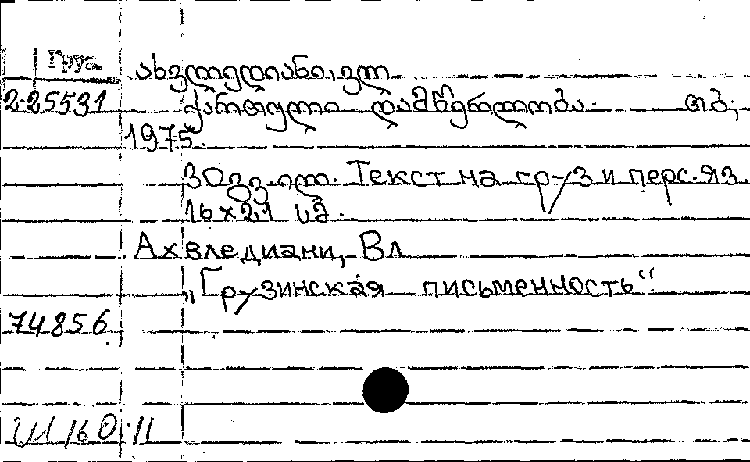 Груз.
ახვლედიანი, ვლ
2-25531 ქართული დამწერლობა. თბ.,
1975.
30 გვ. ილ. Текст на груз и перс. яз
16×21 სმ.
Ахвледиани, Вл
„Грузинская письменность“
74856
160:11